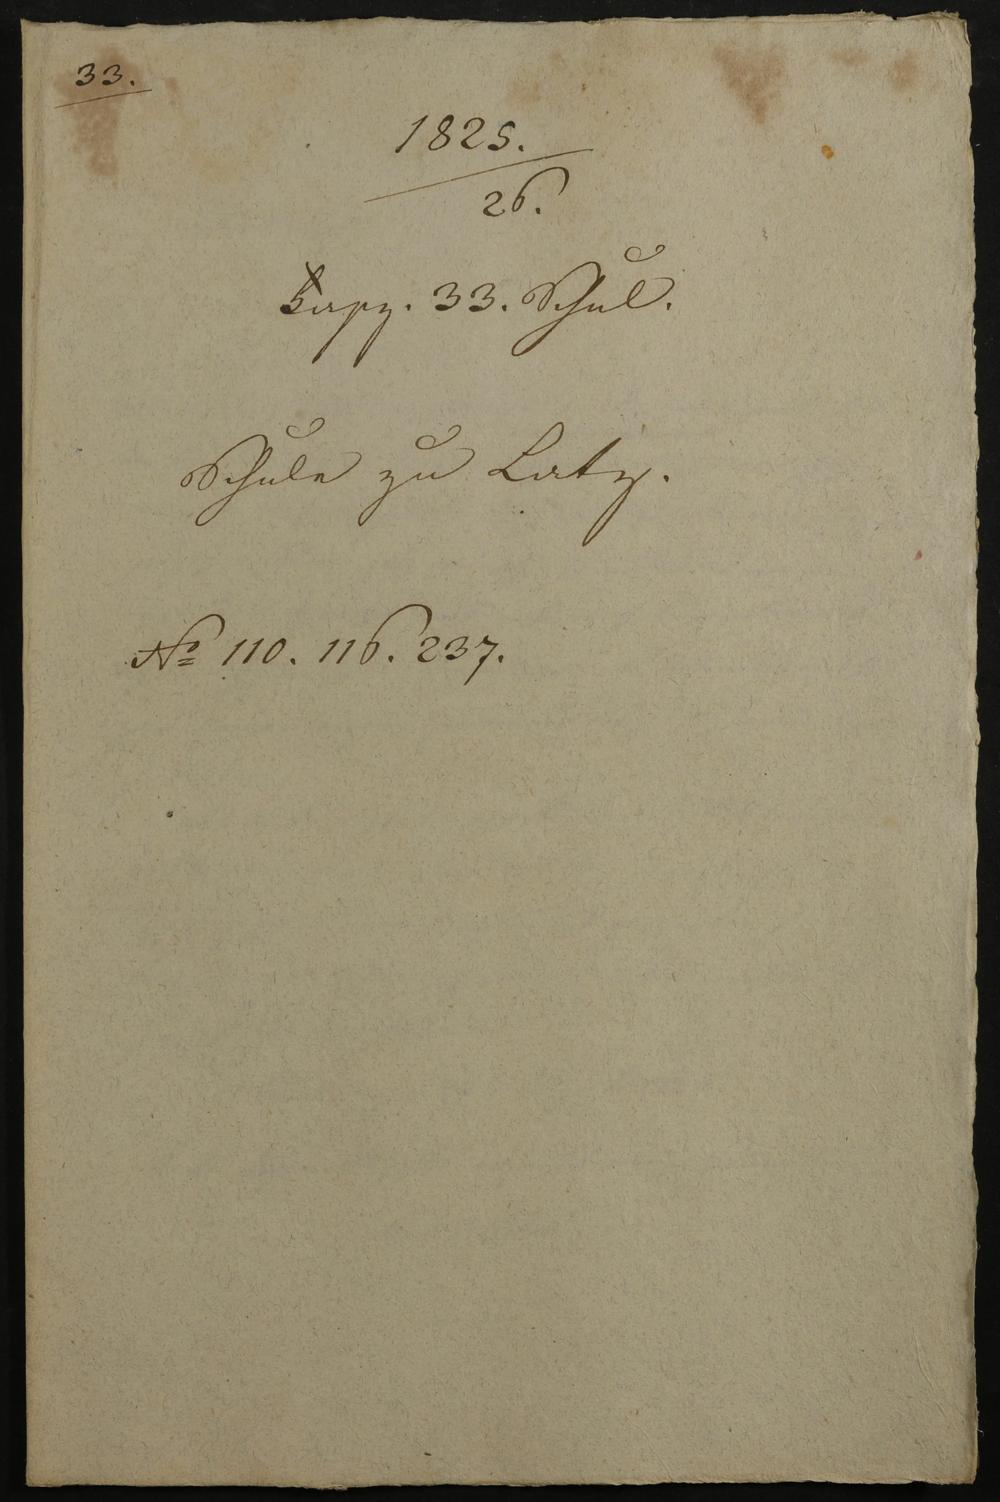 33.
1825.
26.
Fasz. 33. Schul.
Schule zu Latz.
No 110. 116. 237.